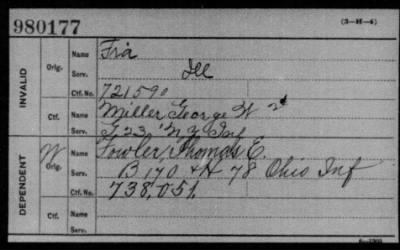 980177
(3—H—4)
INVALID
Orig.
Name
Serv. Ill
Ctf. No. 721590
Ctf.
Name Miller, George W 2d
Serv. 23 N Y Inf
DEPENDENT
W
Orig.
Name Fowler, Thomas E.
Serv. B 170 & H 78 Ohio Inf
Ctf. No. 738,051,
Ctf.
Name
Serv.